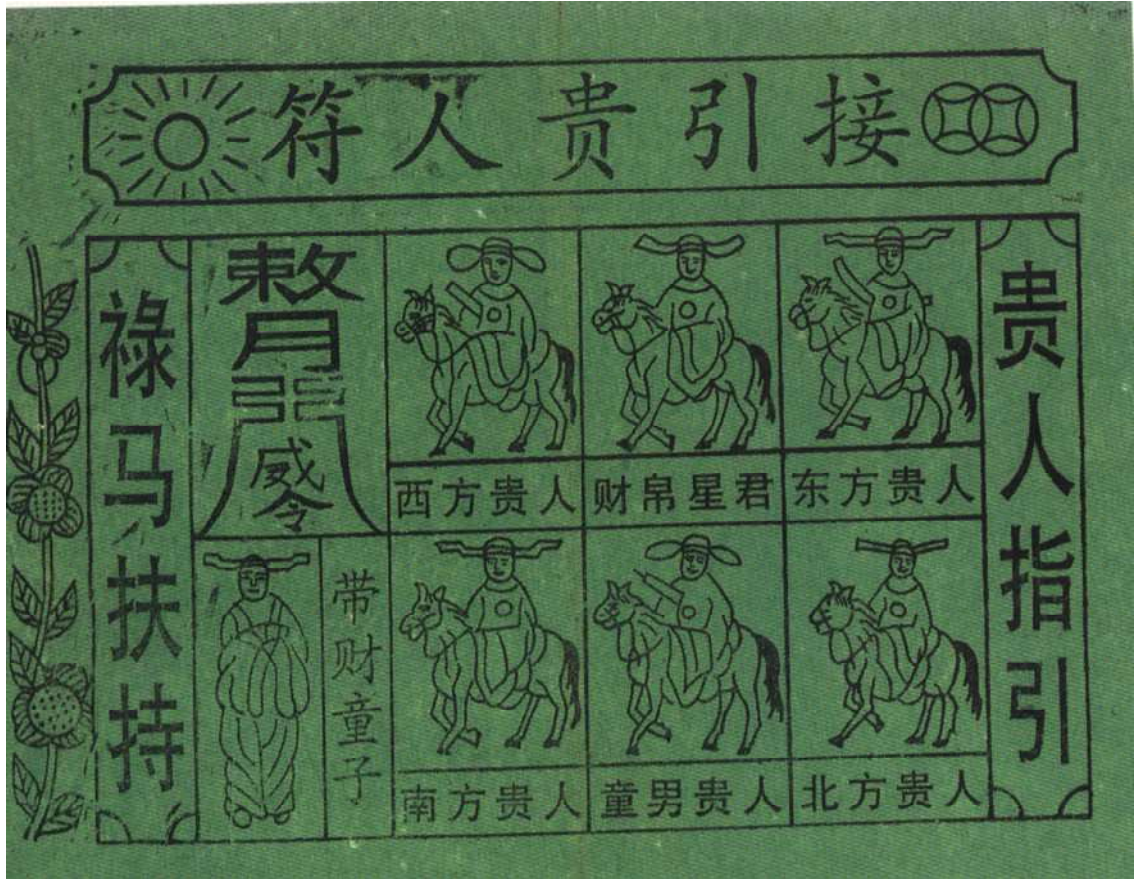 接引贵人符
贵人指引
东方贵人
财帛星君
西方贵人
北方贵人
童男贵人
南方贵人
威令
带财童子
禄马扶持